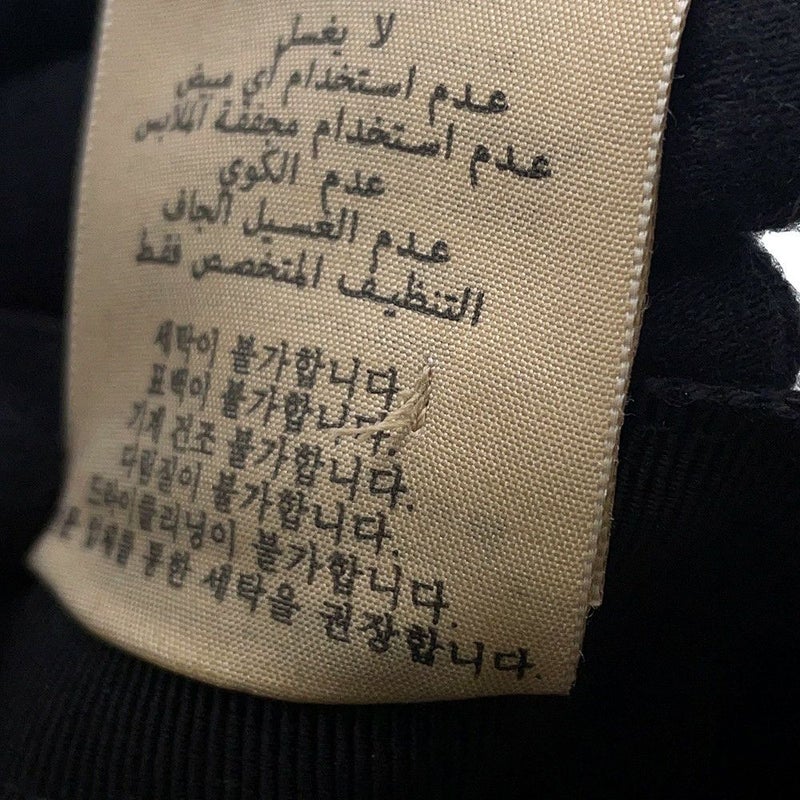 لا يغسل
عدم استخدام أي مبيض
عدم استخدام مجففة الملابس
عدم الكوي
عدم الغسيل الجاف
التنظيف المتخصص فقط
세탁이 불가합니다
표백이 불가합니다.
기계 건조 불가합니다.
다림질이 불가합니다.
드라이클리닝이 불가합니다.
업체를 통한 세탁을 권장합니다.